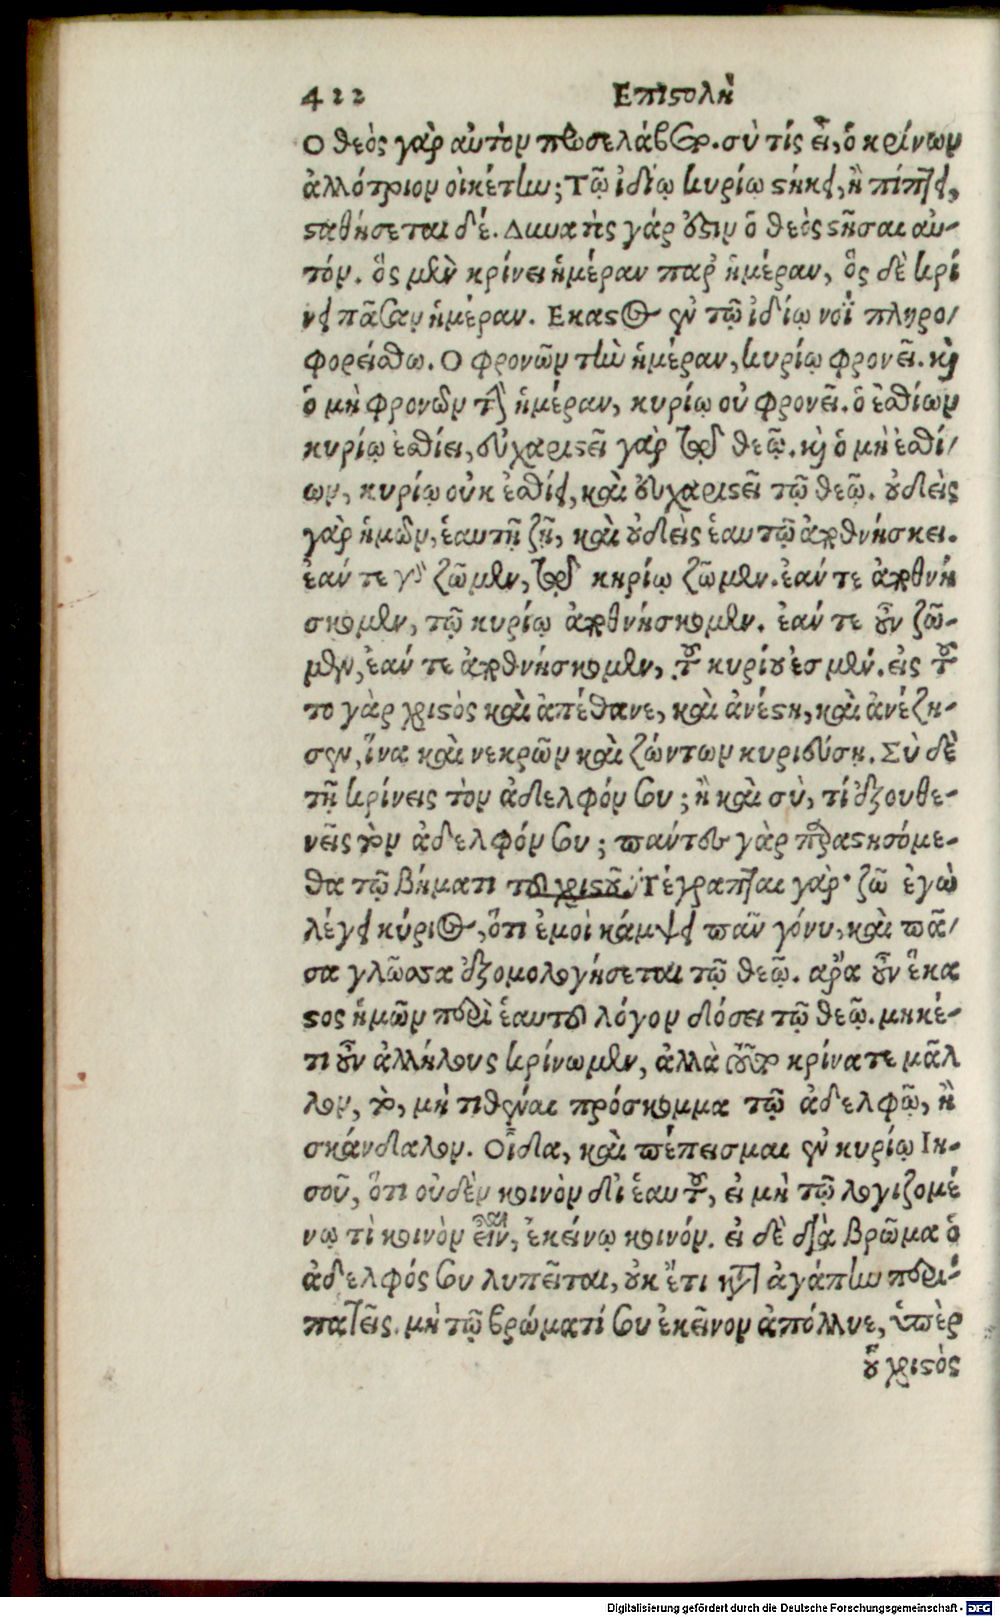 422 Επιστολὴ
Ο θεὸς γὰρ αὐτὸν προσελάβετο. σὺ τίς εἶ, ὁ κρίνων
ἀλλότριον οἰκέτην; Τῷ ἰδίῳ κυρίῳ στήκει, ἢ πίπτει,
σταθήσεται δέ. Δυνατὸς γάρ ἐστιν ὁ θεὸς στῆσαι αὐ-
τόν. ὃς μὲν κρίνει ἡμέραν παρ' ἡμέραν, ὃς δὲ κρί
νει πᾶσαν ἡμέραν. Εκαστος ἐν τῷ ἰδίῳ νοῒ πληρο/
φορείσθω. Ο φρονῶν τὴν ἡμέραν, κυρίῳ φρονεῖ. καὶ
ὁ μὴ φρονῶν τὴν ἡμέραν, κυρίῳ οὐ φρονεῖ. ὁ ἐσθίων
κυρίῳ ἐσθίει, εὐχαριστεῖ γὰρ τῷ θεῷ. καὶ ὁ μὴ ἐσθί/
ων, κυρίῳ οὐκ ἐσθίει, καὶ εὐχαριστεῖ τῷ θεῷ. οὐδεὶς
γὰρ ἡμῶν, ἑαυτῇ ζῇ, καὶ οὐδεὶς ἑαυτῷ ἀποθνήσκει.
ἐάν τε γὰρ ζῶμεν, τῷ κηρίῳ ζῶμεν. ἐάν τε ἀποθνή
σκομεν, τῷ κυρίῳ ἀποθνήσκομεν. ἐάν τε οὖν ζῶ-
μεν, ἐάν τε ἀποθνήσκομεν, τοῦ κυρίου ἐσμέν. εἰς τοῦ
το γὰρ χριστὸς καὶ ἀπέθανε, καὶ ἀνέστη, καὶ ἀνέζη-
σεν, ἵνα καὶ νεκρῶν καὶ ζώντων κυριεύσῃ. Σὺ δὲ
τῇ κρίνεις τὸν ἀδελφόν σου; ἢ καὶ σὺ, τί ἐξουθε-
νεῖς τὸν ἀδελφόν σου; πάντες γὰρ παραστησόμε-
θα τῷ βήματι τοῦ χριστοῦ. Γέγραπται γάρ· ζῶ ἐγὼ
λέγει κύριος, ὅτι ἐμοὶ κάμψει πᾶν γόνυ, καὶ πᾶ/
σα γλῶσσα ἐξομολογήσεται τῷ θεῷ. ἄρα οὖν ἕκα
στος ἡμῶν περὶ ἑαυτοῦ λόγον δώσει τῷ θεῷ. μηκέ-
τι οὖν ἀλλήλους κρίνωμεν, ἀλλὰ τοῦτο κρίνατε μᾶλ
λον, τὸ, μὴ τιθέναι πρόσκομμα τῷ ἀδελφῷ, ἢ
σκάνδαλον. Οἶδα, καὶ πέπεισμαι ἐν κυρίῳ Ιη-
σοῦ, ὅτι οὐδὲν κοινὸν δι' ἑαυτοῦ, εἰ μὴ τῷ λογιζομέ
νῳ τὶ κοινὸν εἶναι, ἐκείνῳ κοινόν. εἰ δὲ διὰ βρῶμα ὁ
ἀδελφός σου λυπεῖται, οὐκ ἔτι κατὰ ἀγάπην περι-
πατεῖς. μὴ τῷ βρώματί σου ἐκεῖνον ἀπόλλυε, ὑπὲρ
οὗ χριστὸς
Digitalisierung gefördert durch die Deutsche Forschungsgemeinschaft - DFG